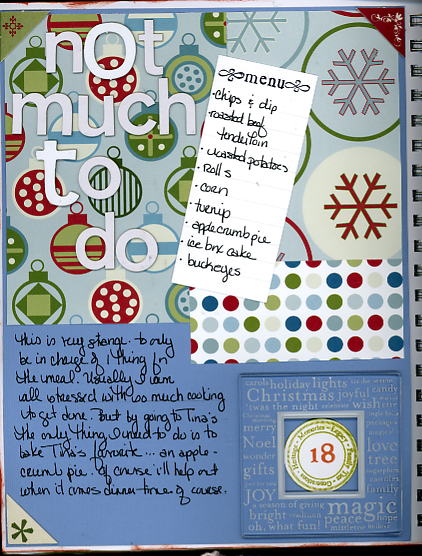 not
much
to
do
menu
· chips & dip
roasted beef
tenderloin
· roasted potatoes
· rolls
· corn
· turnip
· apple crumb pie
· ice box cake
· buckeyes
this is very strange - to only
be in charge of 1 thing for
the meal. Usually I am
all stressed with so much cooking
to get done. But by going to Tina's
the only thing I need to do is to
bake Tina's favorite... an apple-
crumb pie. Of course i'll help out
when it comes dinner-time of course.
carols holiday lights
Christmas joyful
'twas the night candy
wish
merry
Noel
wonder
gifts
JOY
love
tree
family
a season of giving
magic
bright tradition
peace hope
oh, what fun! mistletoe
Memories
18